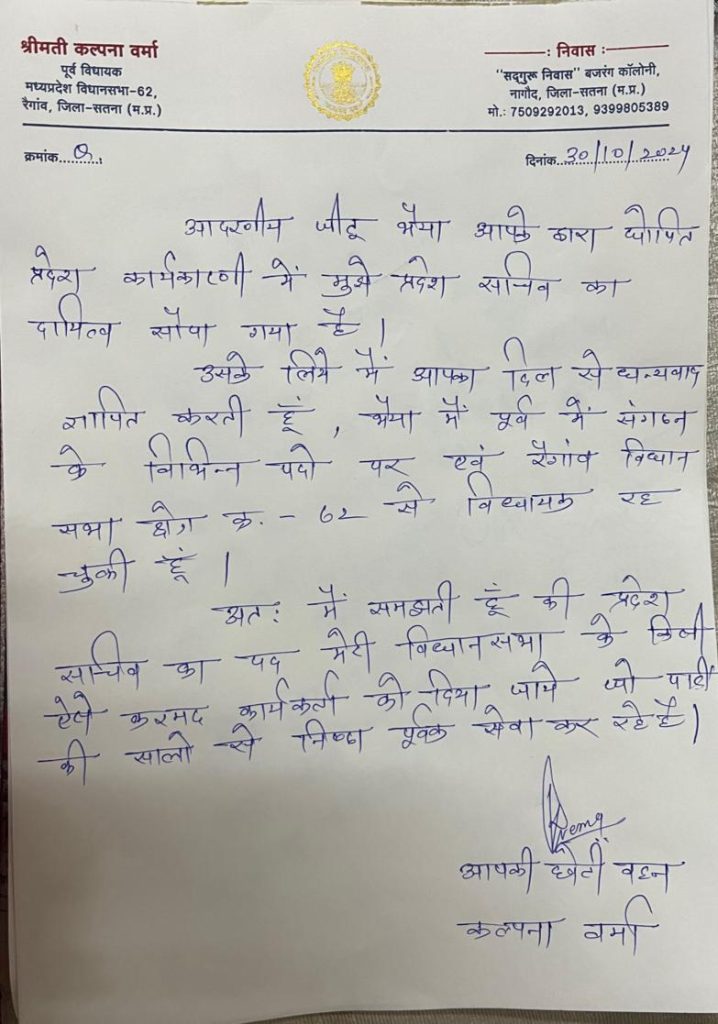 श्रीमती कल्पना वर्मा
पूर्व विधायक
मध्यप्रदेश विधानसभा-62,
रैगांव, जिला-सतना (म.प्र.)
: निवास :
"सद्गुरू निवास" बजरंग कॉलोनी,
नागौद, जिला-सतना (म.प्र.)
मो.: 7509292013, 9399805389
क्रमांक..........
दिनांक..30/10/2024
आदरणीय जीतू भैया आपके द्वारा घोषित
प्रदेश कार्यकारणी में मुझे प्रदेश सचिव का
दायित्व सौपा गया है।
उसके लिये मैं आपका दिल से धन्यवाद
ज्ञापित करती हूँ, भैया मैं पूर्व में संगठन
के विभिन्न पदो पर एवं रैगांव विधान
सभा क्षेत्र क्र. - 62 से विधायक रह
चुकी हूँ।
अतः मैं समझती हूँ की प्रदेश
सचिव का पद मेरी विधानसभा के किसी
ऐसे करमठ कार्यकर्ता को दिया जाये जो पार्टी
की सालो से निष्ठा पूर्वक सेवा कर रहे है।
आपकी छोटी बहन
कल्पना वर्मा